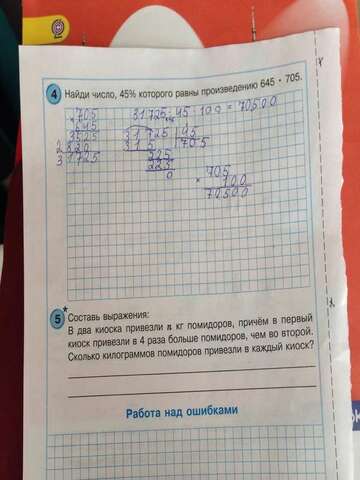 4 Найди число, 45% которого равны произведению 645 · 705.
705 31725 : 45 · 100 = 70500
645
3525 31725 45
2820 315 705
31725 225
225
0
705
× 100
70500
5* Составь выражения:
В два киоска привезли n кг помидоров, причём в первый
киоск привезли в 4 раза больше помидоров, чем во второй.
Сколько килограммов помидоров привезли в каждый киоск?
Работа над ошибками